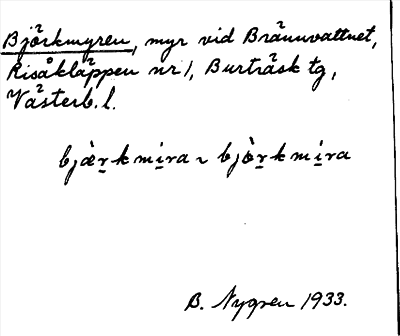 Björkmyren, myr vid Brännvattnet,
Risåkläppen nr 1, Burträsk tg,
Västerb. l.
bjæ̀r̠kmi̠ra ~ björ̠kmi̠ra
B. Nygren 1933.